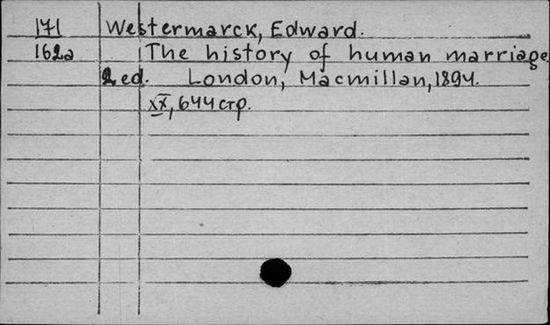 171 Westermarck, Edward.
162a The history of human marriage
2 ed. London, Macmillan, 1894.
XX, 644 стр.